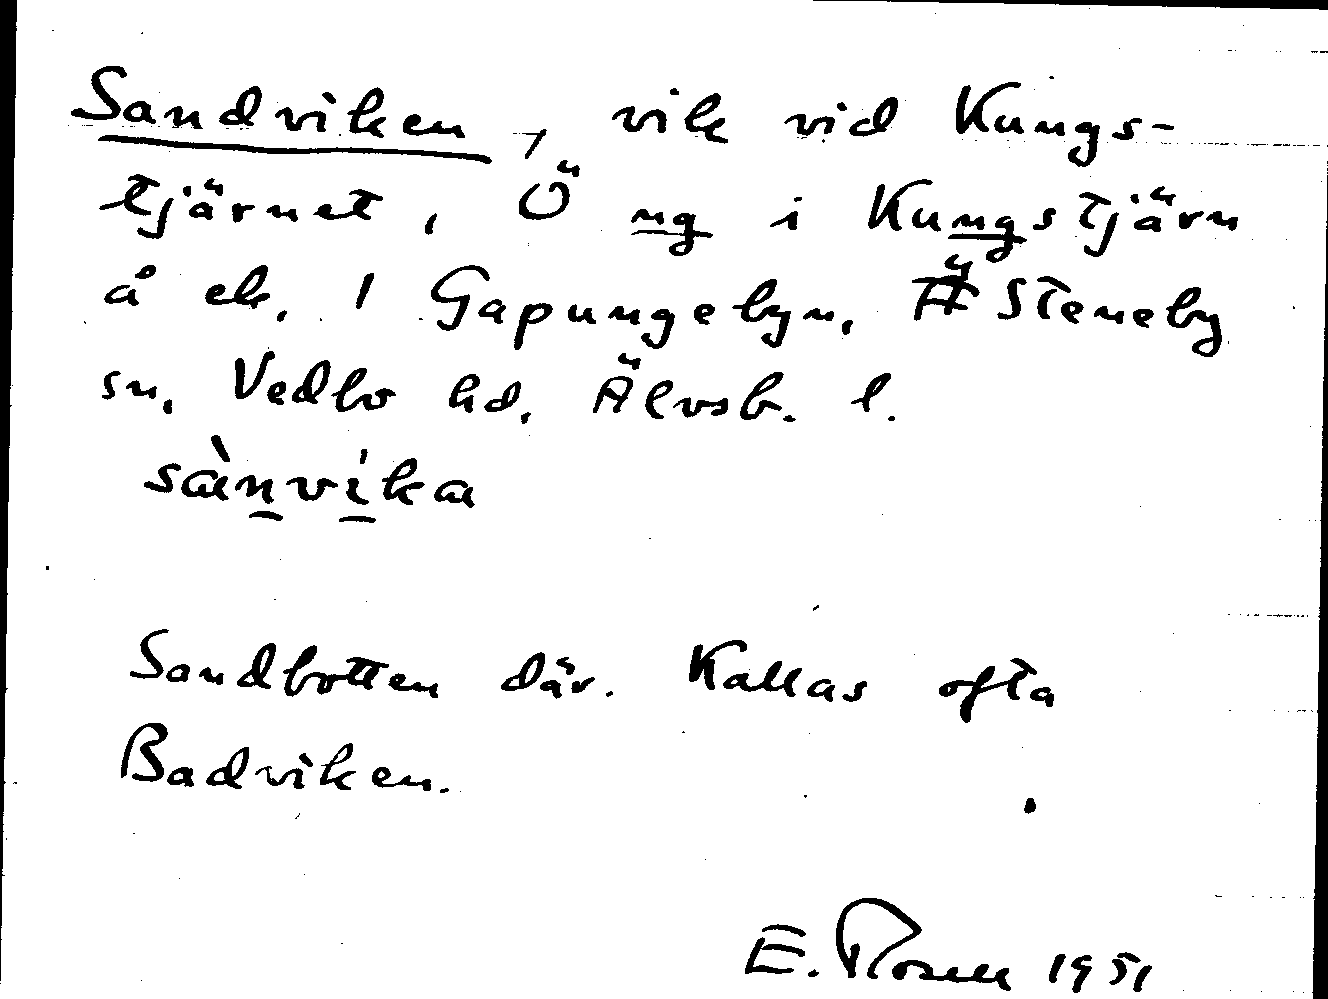 Sandviken, vik vid Kungs-
tjärnet, Ö ng i Kungstjärn
å ek. 1 Gapungebyn, Steneby
sn, Vedbo hd, Älvsb. l.
sànvíka
Sandbotten där. Kallas ofta
Badviken.
E. Rosell 1951